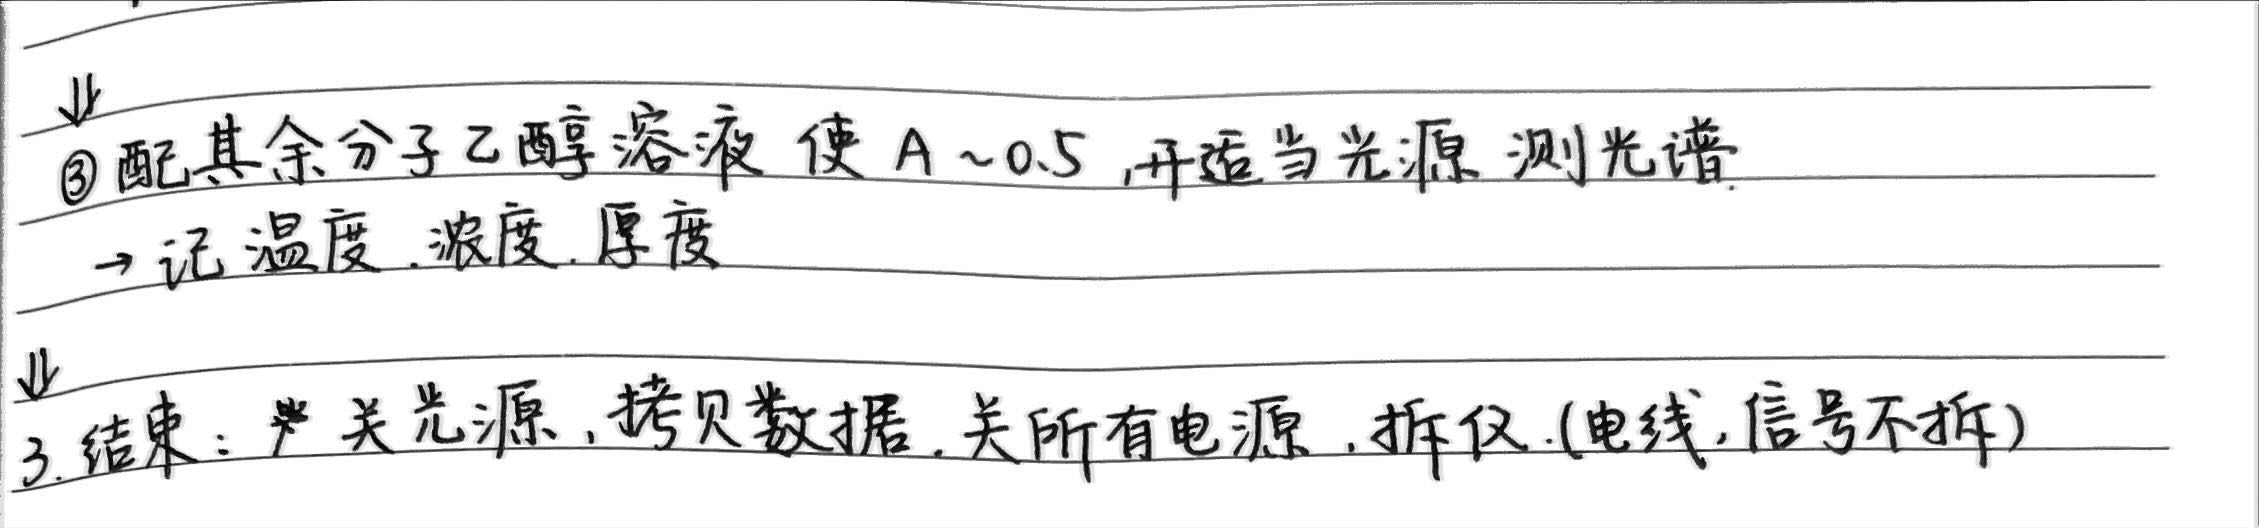 ⇓
③配其余分子乙醇溶液 使 A ~0.5 ,开适当光源 测光谱.
→ 记 温度.浓度.厚度
⇓
3.结束: 关光源,拷贝数据.关所有电源,拆仪.(电线,信号不拆)